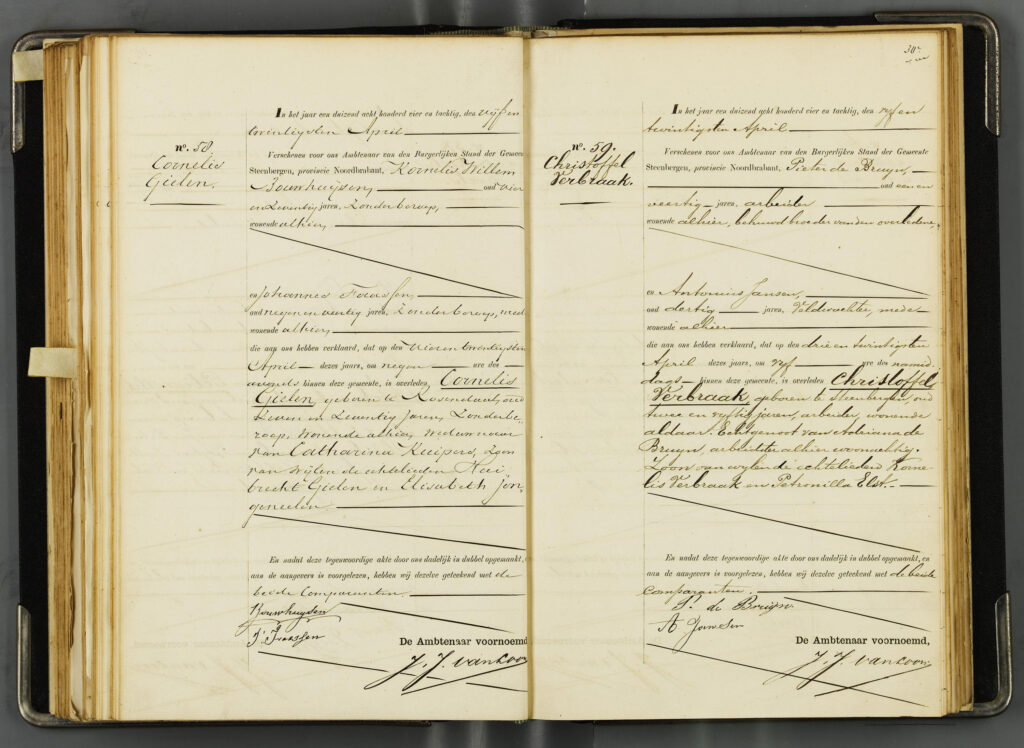 nº. 58.
Cornelis
Gielen.
In het jaar een duizend acht honderd vier en tachtig, den vijf en
twintigsten April
Verschenen voor ons Ambtenaar van den Burgerlijken Stand der Gemeente
Steenbergen, provincie Noordbrabant, Kornelis Willem
Bouwhuijsen, oud vier
en zeventig jaren, Zonder beroep,
wonende alhier,
en Johannes Fraassen,
oud negen en veertig jaren, Zonder beroep, mede
wonende alhier
die aan ons hebben verklaard, dat op den vier en twintigsten
April dezes jaars, om negen ure des
avonds binnen deze gemeente, is overleden Cornelis
Gielen, geboren te Rosendaal, oud
zeven en zeventig jaren, Zonder be-
roep, wonende alhier, weduwnaar
van Catharina Kuipers, Zoon
van wijlen de echtelieden
brecht Gielen en Elisabeth Jon-
geneelen.
En nadat deze tegenwoordige akte door ons dadelijk in dubbel opgemaakt, en
aan de aangevers is voorgelezen, hebben wij dezelve geteekend met de
beide Comparanten.
Bouwhuijsen
J. Fraassen
De Ambtenaar voornoemd,
J. J. van Loon
30
nº. 59.
Christoffel
Verbraak.
In het jaar een duizend acht honderd vier en tachtig, den vijf en
twintigsten April
Verschenen voor ons Ambtenaar van den Burgerlijken Stand der Gemeente
Steenbergen, provincie Noordbrabant, Pieter de Bruyn,
oud een en
veertig jaren, arbeider
wonende alhier, behuwd broeder van den overledene,
en Antonius Jansen,
oud dertig jaren, Veldwachter, mede
wonende alhier
die aan ons hebben verklaard, dat op den drie en twintigsten
April dezes jaars, om vyf ure des namid-
dags binnen deze gemeente, is overleden Christoffel
Verbraak, geboren te Steenbergen, oud
twee en vyftig jaren, arbeider, wonende
aldaar. Echtgenoot van Adriana de
Bruyn, arbeidster alhier woonachtig.
Zoon van wylen de echtelieden Korne-
lis Verbraak en Petronilla Elst.
En nadat deze tegenwoordige akte door ons dadelijk in dubbel opgemaakt, en
aan de aangevers is voorgelezen, hebben wij dezelve geteekend met de beide
comparanten.
P. de Bruyn
A Jansen
De Ambtenaar voornoemd,
J. J. van Loon